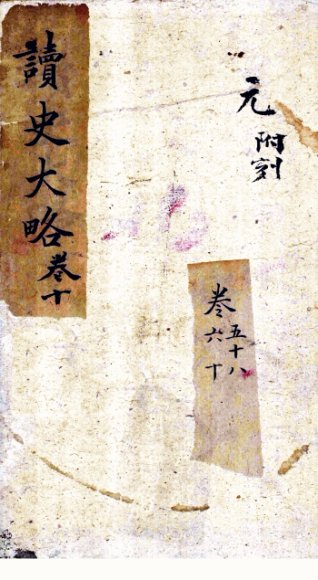 讀史大略卷十
元
附刻
卷五十八
六十